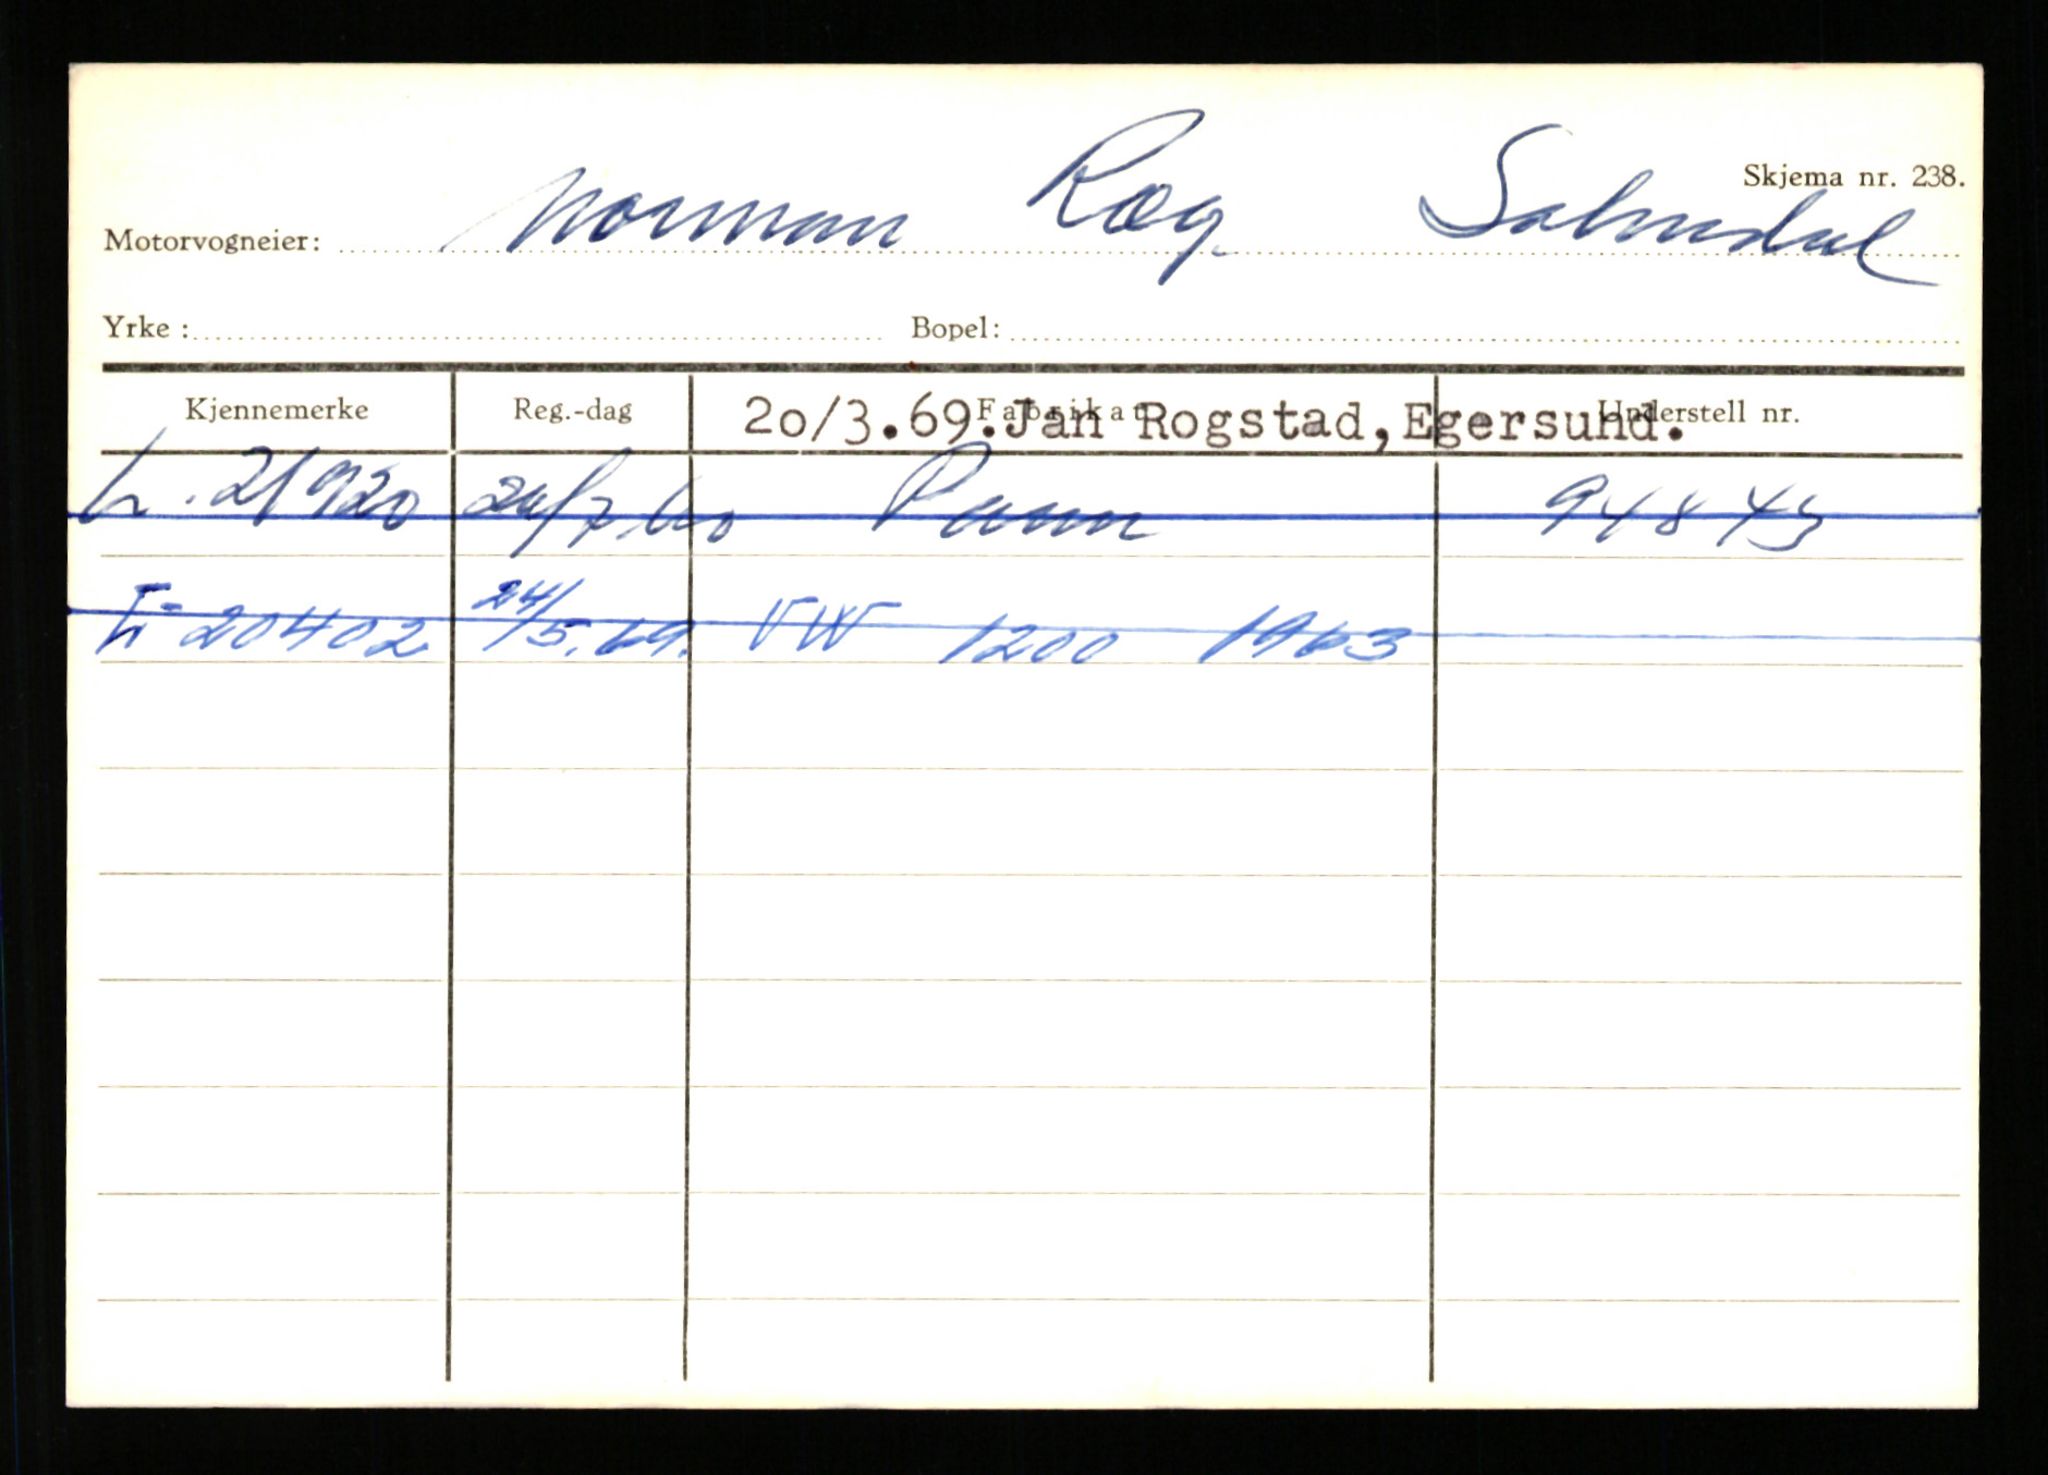 Skjema nr. 238.
Motorvogneier: Norman Ræg.
Yrke : Bopel:
Kjennemerke Reg.-dag Fabrikat Understell nr.
20/3.69.Jan Rogstad,Egersund.
L. 21920 94843
L- 20402 24/5.69. VW 1200 1963